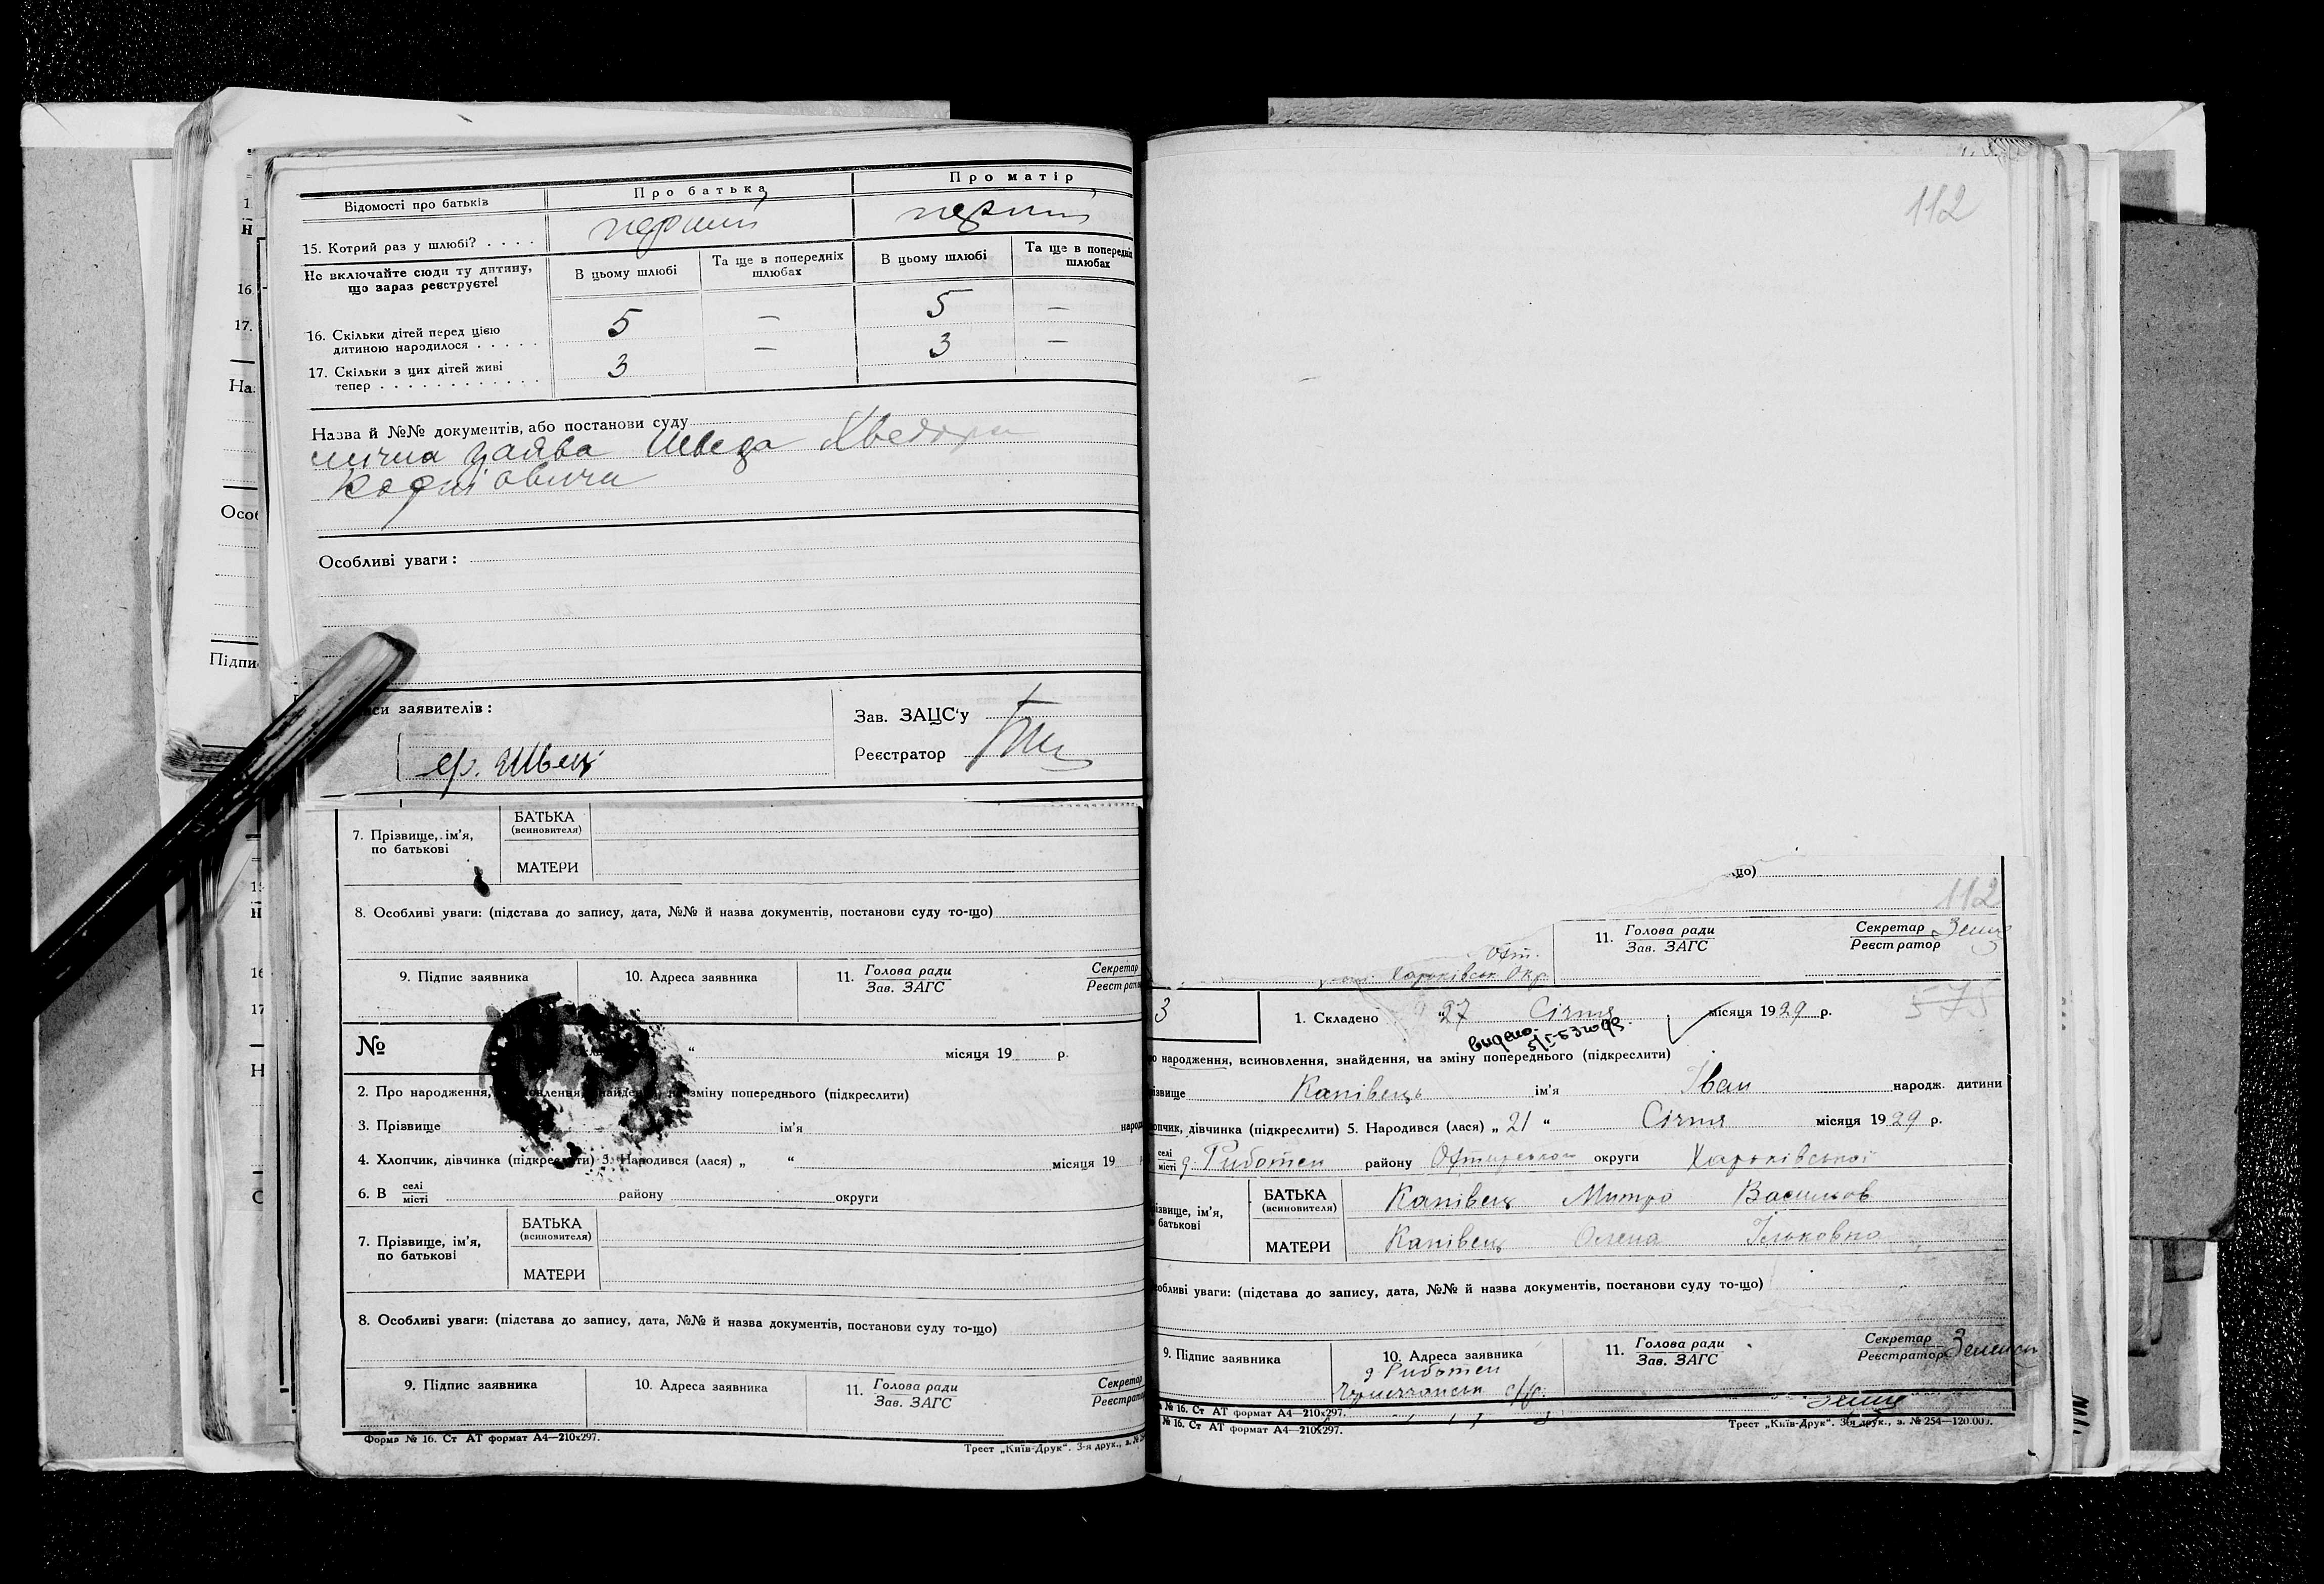 Відомості про батьків
Про батька
Про матір
15. Котрий раз у шлюбі? . . . .
перший
перший
Не включайте сюди ту дитину,
що зараз реєструєте!
В цьому шлюбі
Та ще в попередніх
шлюбах
В цьому шлюбі
Та ще в попередніх
шлюбах
16. Скільки дітей перед цією
дитиною народилося . . . . .
5
—
5
—
17. Скільки з цих дітей живі
тепер . . . . . . . . . . . . .
3
—
3
—
Назва й №№ документів, або постанови суду
заява Шведа Хведора
Особливі уваги :
си заявителів :
Зав. ЗАЦС'у
Реєстратор
Швець
7. Прізвище, ім'я,
по батькові
БАТЬКА
(всиновителя)
МАТЕРИ
8. Особливі уваги: (підстава до запису, дата, №№ й назва документів, постанови суду то-що)
9. Підпис заявника
10. Адреса заявника
11. Голова ради
Зав. ЗАГС
Секретар
№
“ місяця 19 р.
2. Про народження, зміну попереднього (підкреслити)
3. Прізвище ім'я
4. Хлопчик, дівчинка (підкреслити) 5. Народився (лася) „ “ місяця 19
6. В селі
місті
району округи
7. Прізвище, ім'я,
по батькові
БАТЬКА
(всиновителя)
МАТЕРИ
8. Особливі уваги: (підстава до запису, дата, №№ й назва документів, постанови суду то-що)
9. Підпис заявника
10. Адреса заявника
11. Голова ради
Зав. ЗАГС
Секретар
Форма № 16. Ст АТ формат А4—210х297.
Трест „Київ-Друк“. 3-я друк.,
112
що)
112
Охт.
Харьківськ Окр.
11. Голова ради
Зав. ЗАГС
Секретар
Реєстратор
3
1. Складено 27 Січня місяця 1929 р.
575
видано.
о народження, всиновлення, знайдення, на зміну попереднього (підкреслити)
ізвище Канівець ім'я Іван народж. дитини
опчик, дівчинка (підкреслити) 5. Народився (лася) „ 21 “ Січня місяця 1929 р.
селі
місті
району округи Харьківської
ізвище, ім'я,
батькові
БАТЬКА
(всиновителя)
Канівець Митро Васильов
МАТЕРИ
Канівець Олена Ільковна
собливі уваги: (підстава до запису, дата, №№ й назва документів, постанови суду то-що)
9. Підпис заявника
10. Адреса заявника
11. Голова ради
Зав. ЗАГС
Секретар
Реєстратор
№ 16. Ст АТ формат А4—210х297.
№ 16. Ст АТ формат А4—210х297.
Трест „Київ-Друк“. 3-я друк., з. № 254—120.000.